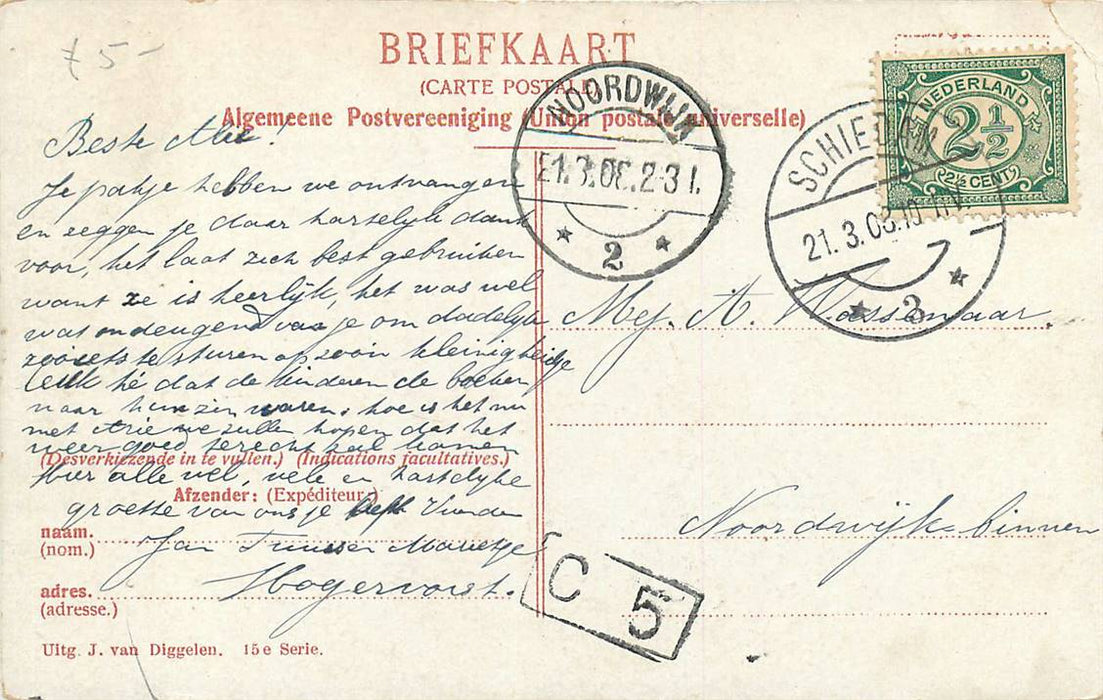 75-
BRIEFKAART
(CARTE POSTALE)
Algemeene Postvereeniging (Union postale universelle)
NEDERLAND
2½
(2½ CENT)
NOORDWIJK
21.3.08.2-3 N.
2
SCHIEDAM
21.3.08.10
3
Beste Mie!
Je pakje hebben we ontvangen
en zeggen je daar hartelyk dank
voor, het laat zich best gebruiken
want ze is heerlijk, het was wel
wat ondeugend van je om dadelijk
zooiets te sturen op zoo'n kleinigheidje
leuk hé dat de kinderen de boeken
naar hun zin waren. hoe is het nu
met Arie we zullen hopen dat het
weer goed terecht zal komen
hier alle wel, vele en hartelyke
groette van ons je Vrienden
Jan Marietje
Hogervorst.
(Desverkiezende in te vullen.) (Indications facultatives.)
Afzender: (Expéditeur:)
naam.
(nom.)
adres.
(adresse.)
Uitg. J. van Diggelen. 15e Serie.
Mej. A. Wassenaar.
Noordwijk binnen
C 5